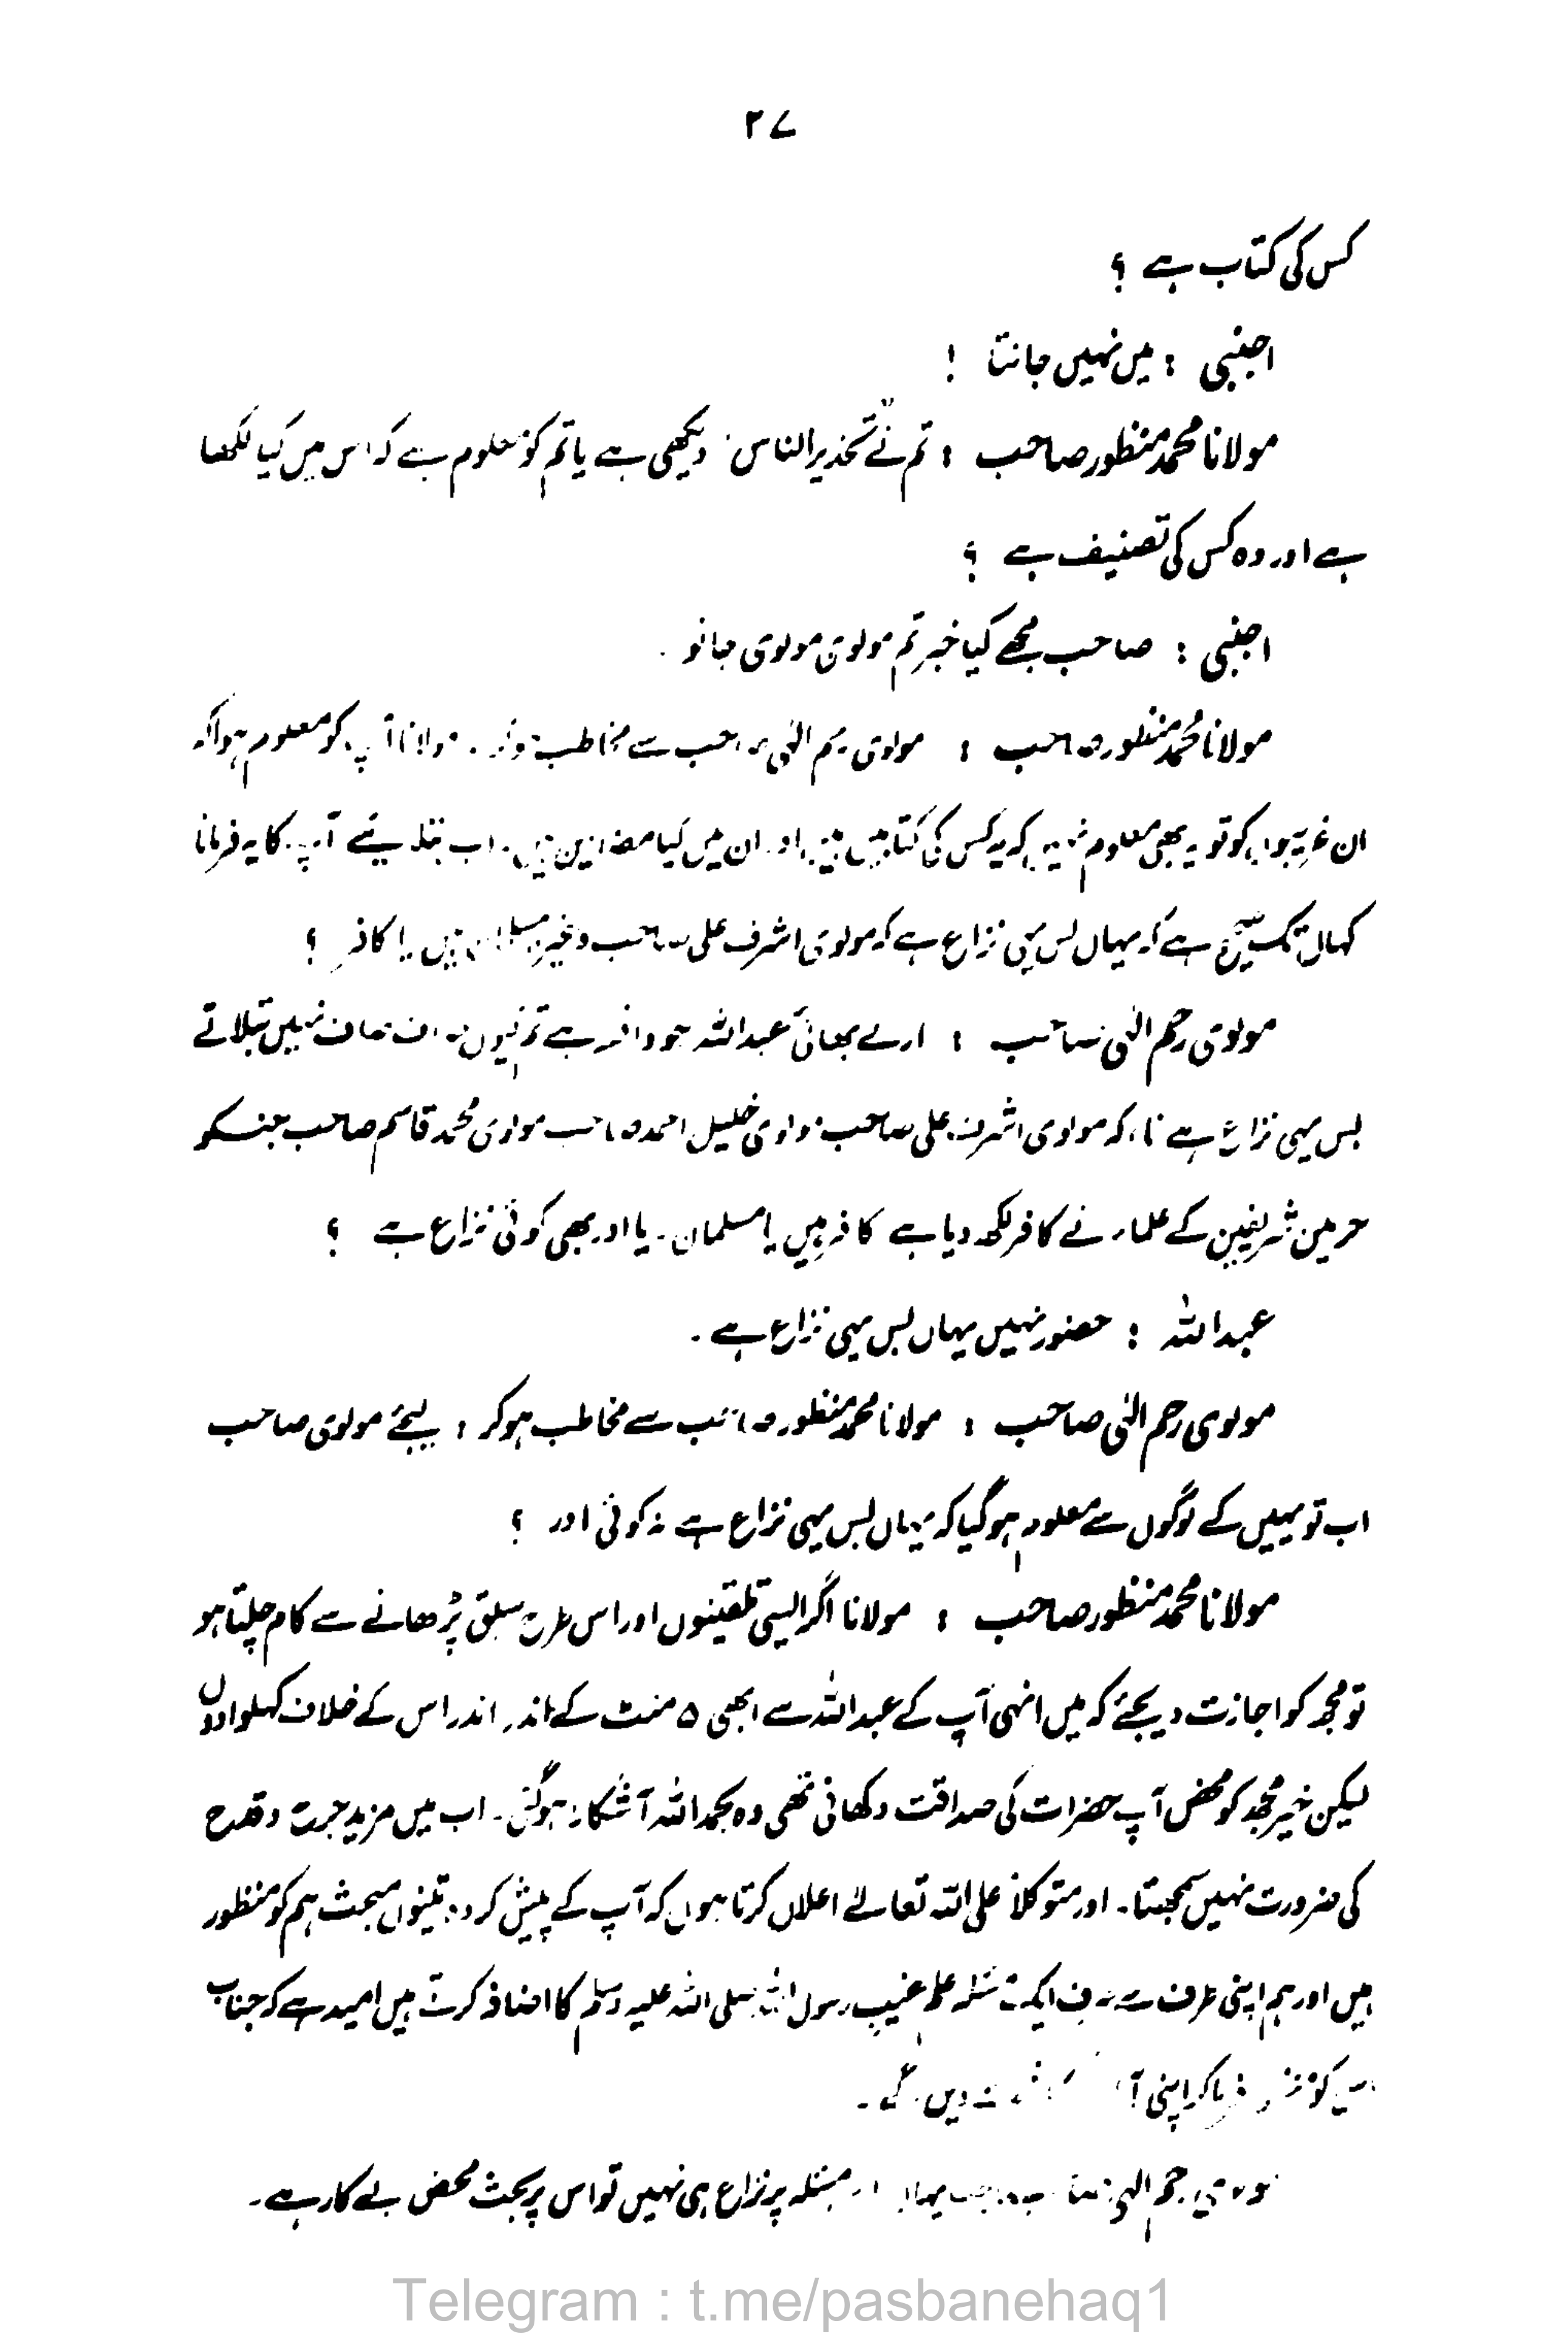 ۲۷
کس کی کتاب ہے ؟
اجنبی : میں نہیں جانتا !
مولانا محمد منظور صاحب : تم نے "تحذیر الناس" دیکھی ہے یا تم کو معلوم ہے کہ اس میں کیا لکھا
ہے اور وہ کس کی تصنیف ہے ؟
اجنبی : صاحب مجھے کیا خبر تم مولوی مولوی جانو ۔
مولانا محمد منظور صاحب : مولوی رحم الٰہی صاحب سے مخاطب ہوکر ۔ مولانا آپ کو معلوم ہوا کہ
ان غریبوں کو تو یہ بھی معلوم نہیں کہ یہ کس کی کتابیں ہیں اور ان میں کیا مضامین ہیں۔ اب بتلایئے آپ کا یہ فرمانا
کہاں تک صحیح ہے کہ یہاں بس یہی نزاع ہے کہ مولوی اشرف علی صاحب وغیرہ مسلمان ہیں یا کافر ؟
مولوی رحم الٰہی صاحب : ارے بھائی عبداللہ جو واقعہ ہے تم کیوں صاف صاف نہیں بتلاتے
بس یہی نزاع ہے نا، کہ مولوی اشرف علی صاحب مولوی خلیل احمد صاحب مولوی محمد قاسم صاحب جنکو
حرمین شریفین کے علماء نے کافر لکھ دیا ہے کافر ہیں یا مسلمان ۔ یا اور بھی کوئی نزاع ہے ؟
عبداللہ : حضور نہیں یہاں بس یہی نزاع ہے ۔
مولوی رحم الٰہی صاحب : مولانا محمد منظور صاحب سے مخاطب ہوکر : لیجئے مولوی صاحب
اب تو یہیں کے لوگوں سے معلوم ہوگیا کہ یہاں بس یہی نزاع ہے نہ کوئی اور ؟
مولانا محمد منظور صاحب : مولانا اگر ایسی تلقینوں اور اس طرح سبق پڑھانے سے کام چلتا ہو
تو مجھ کو اجازت دیجئے کہ میں انہی آپ کے عبداللہ سے ابھی ۵ منٹ کے اندر اندر اس کے خلاف کہلوا دوں
لیکن خیر مجھ کو محض آپ حضرات کی صداقت دکھانی تھی وہ بحمد اللہ آشکارا ہوگئی ۔ اب میں مزید جرح و قدح
کی ضرورت نہیں سمجھتا ۔ اور متوکلاً علی اللہ تعالےٰ اعلان کرتا ہوں کہ آپ کے پیش کردہ تینوں مبحث ہم کو منظور
ہیں اور ہم اپنی طرف سے صرف ایک مسئلہ علم غیب رسول اللہ صلی اللہ علیہ وسلم کا اضافہ کرتے ہیں امید ہے کہ جناب
کو فرما کر اپنی دیں گے ۔
مولوی رحم الٰہی صاحب یہاں مسئلہ پر نزاع ہی نہیں تو اس پر بحث محض بے کار ہے ۔
Telegram : t.me/pasbanehaq1